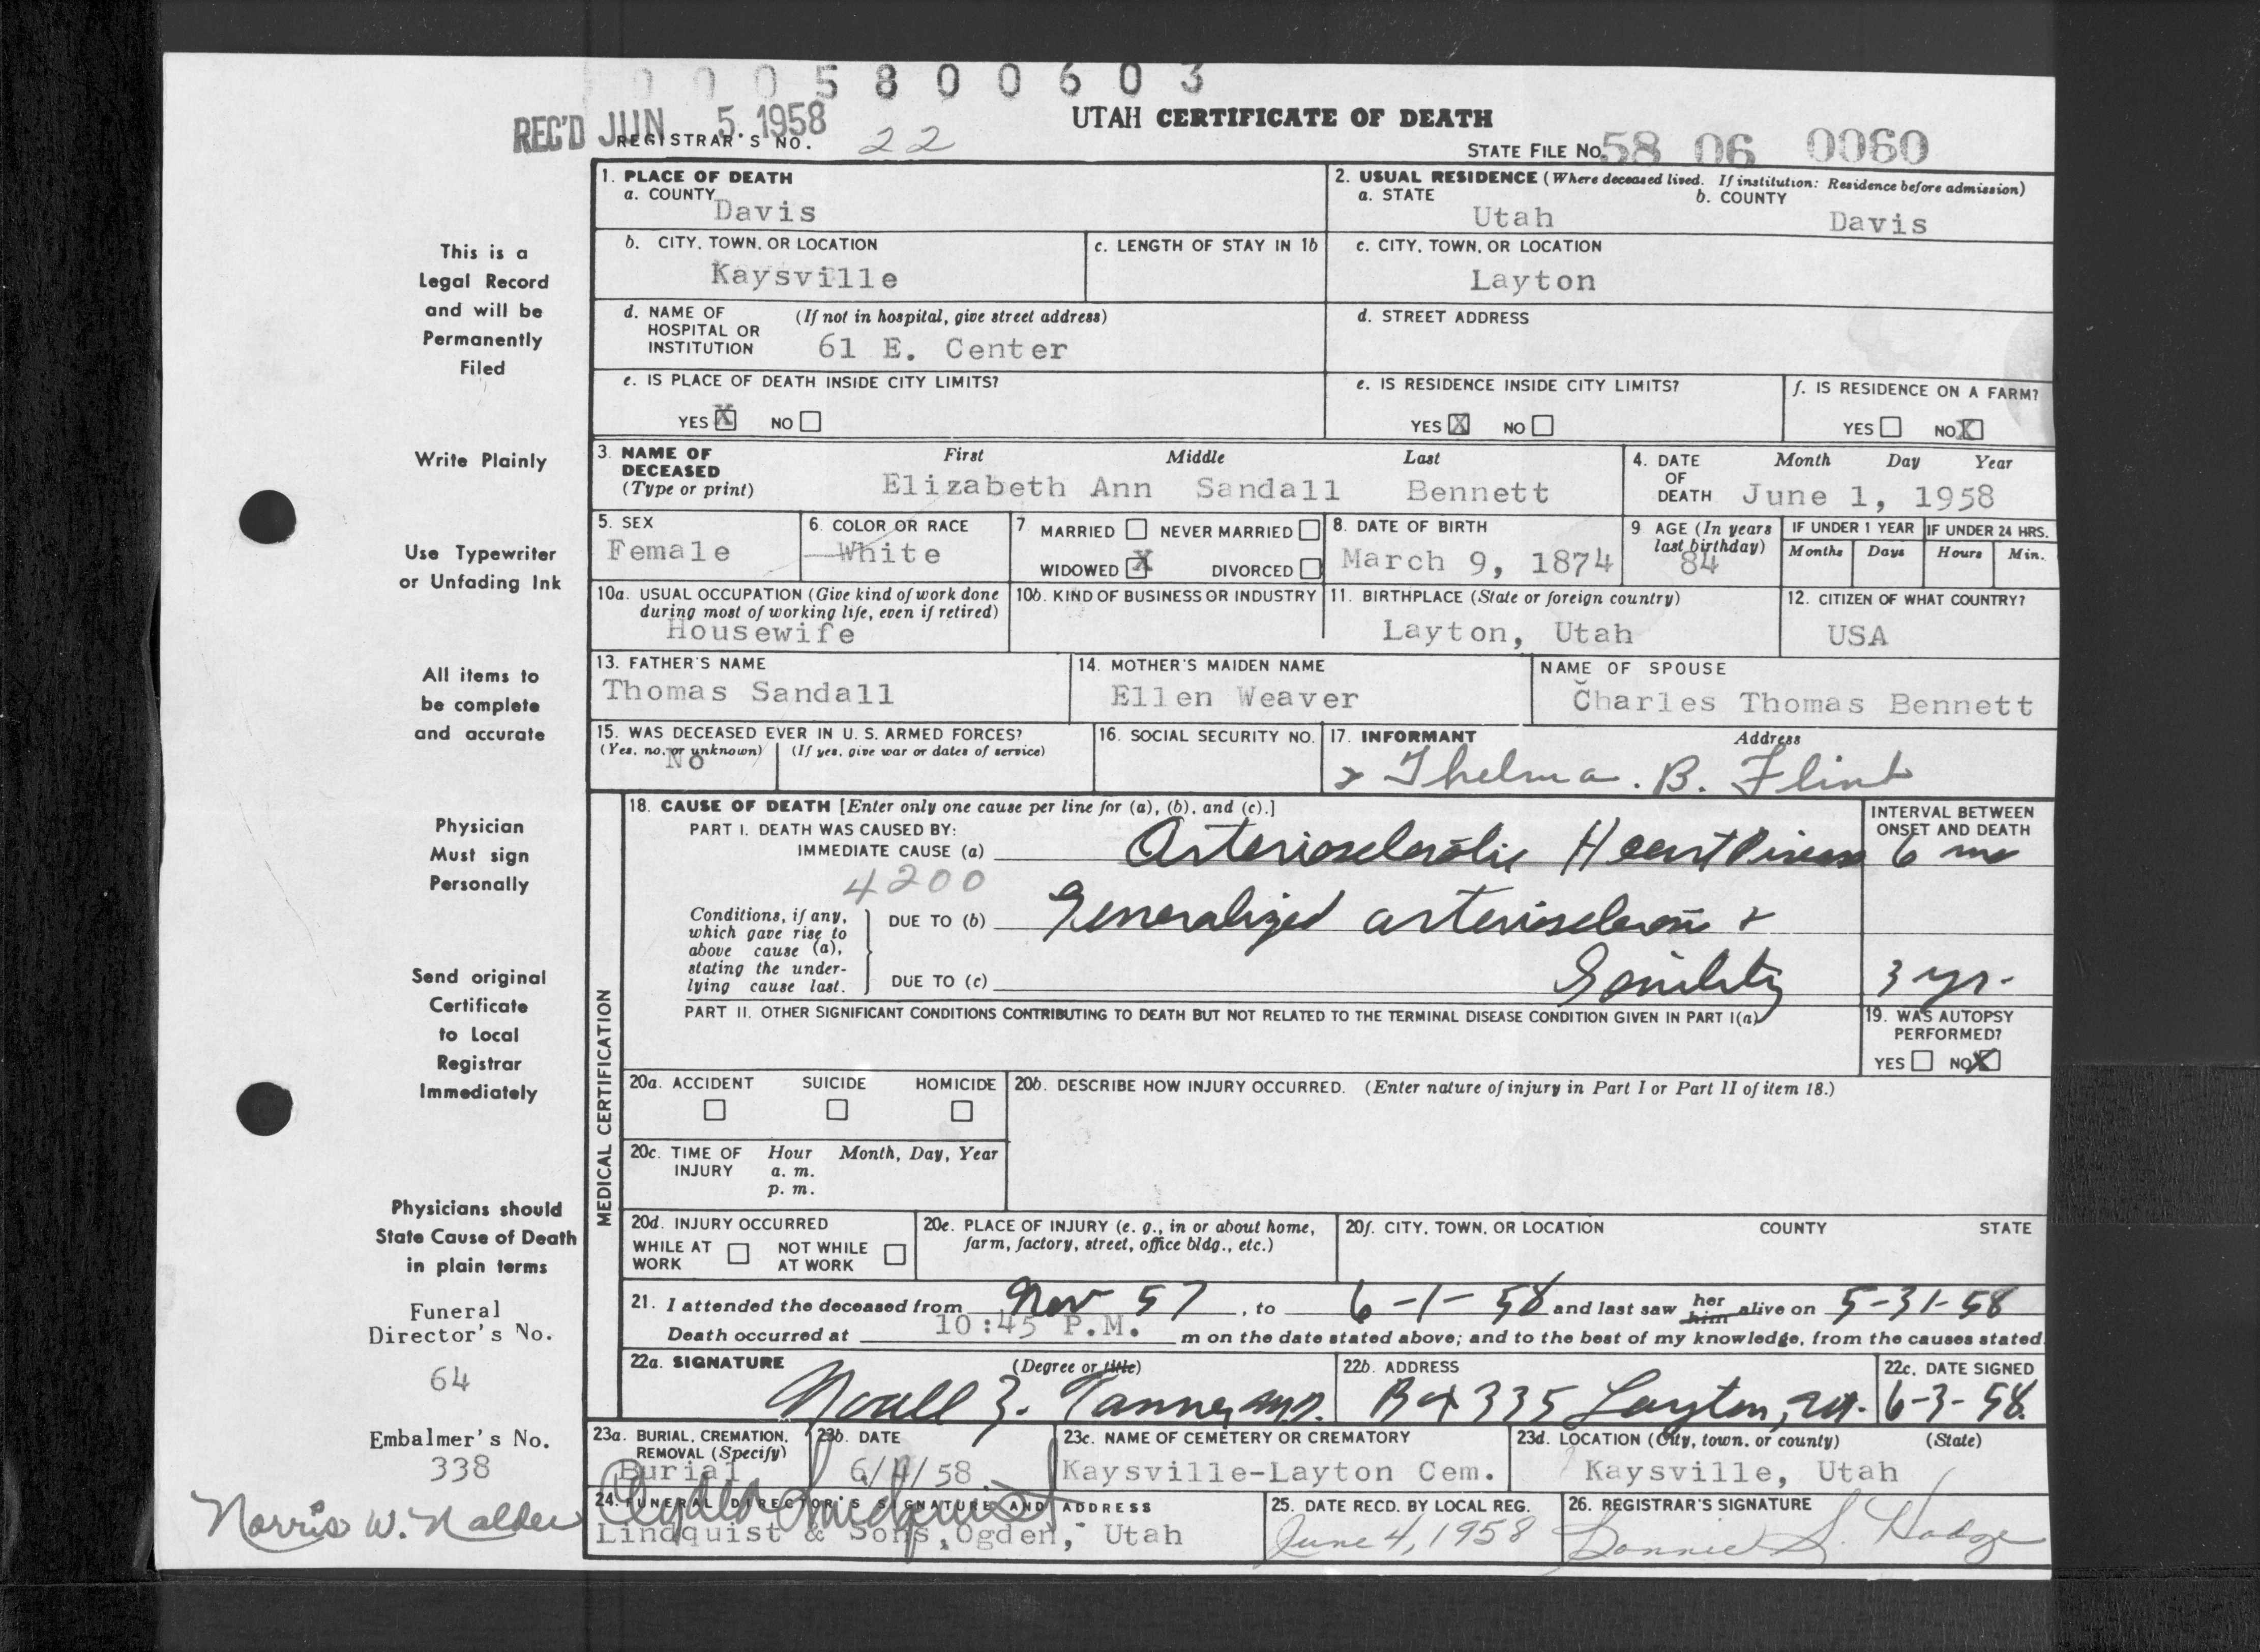 0 0 0 5 8 0 0 6 0 3
REC'D JUN 5 1958
UTAH CERTIFICATE OF DEATH
REGISTRAR'S NO. 22
STATE FILE NO. 58 06 0060
1. PLACE OF DEATH
a. COUNTY
Davis
2. USUAL RESIDENCE (Where deceased lived. If institution: Residence before admission)
a. STATE b. COUNTY
Utah Davis
b. CITY, TOWN, OR LOCATION
Kaysville
c. LENGTH OF STAY IN 1b
c. CITY, TOWN, OR LOCATION
Layton
d. NAME OF HOSPITAL OR INSTITUTION (If not in hospital, give street address)
61 E. Center
d. STREET ADDRESS
e. IS PLACE OF DEATH INSIDE CITY LIMITS?
YES X NO
e. IS RESIDENCE INSIDE CITY LIMITS?
YES X NO
f. IS RESIDENCE ON A FARM?
YES NO X
3. NAME OF DECEASED (Type or print)
First Middle Last
Elizabeth Ann Sandall Bennett
4. DATE OF DEATH Month Day Year
June 1, 1958
5. SEX
Female
6. COLOR OR RACE
White
7. MARRIED NEVER MARRIED
WIDOWED X DIVORCED
8. DATE OF BIRTH
March 9, 1874
9 AGE (In years last birthday)
84
IF UNDER 1 YEAR IF UNDER 24 HRS.
Months Days Hours Min.
10a. USUAL OCCUPATION (Give kind of work done during most of working life, even if retired)
Housewife
10b. KIND OF BUSINESS OR INDUSTRY
11. BIRTHPLACE (State or foreign country)
Layton, Utah
12. CITIZEN OF WHAT COUNTRY?
USA
13. FATHER'S NAME
Thomas Sandall
14. MOTHER'S MAIDEN NAME
Ellen Weaver
NAME OF SPOUSE
Charles Thomas Bennett
15. WAS DECEASED EVER IN U. S. ARMED FORCES?
(Yes, no, or unknown) (If yes, give war or dates of service)
No
16. SOCIAL SECURITY NO.
17. INFORMANT Address
x Thelma. B. Flint
MEDICAL CERTIFICATION
18. CAUSE OF DEATH [Enter only one cause per line for (a), (b), and (c).]
INTERVAL BETWEEN ONSET AND DEATH
PART I. DEATH WAS CAUSED BY:
IMMEDIATE CAUSE (a) Arteriosclerotic Heart Disease 6 mo
4200
Conditions, if any, which gave rise to above cause (a), stating the underlying cause last.
DUE TO (b) Generalized arteriosclerosis +
DUE TO (c) Senility 3 yr.
PART II. OTHER SIGNIFICANT CONDITIONS CONTRIBUTING TO DEATH BUT NOT RELATED TO THE TERMINAL DISEASE CONDITION GIVEN IN PART I(a)
19. WAS AUTOPSY PERFORMED?
YES NO X
20a. ACCIDENT SUICIDE HOMICIDE
20b. DESCRIBE HOW INJURY OCCURRED. (Enter nature of injury in Part I or Part II of item 18.)
20c. TIME OF INJURY Hour Month, Day, Year
a. m.
p. m.
20d. INJURY OCCURRED
WHILE AT WORK NOT WHILE AT WORK
20e. PLACE OF INJURY (e. g., in or about home, farm, factory, street, office bldg., etc.)
20f. CITY, TOWN, OR LOCATION COUNTY STATE
21. I attended the deceased from Nov 57, to 6-1-58 and last saw her him alive on 5-31-58
Death occurred at 10:45 P.M. m on the date stated above; and to the best of my knowledge, from the causes stated.
22a. SIGNATURE (Degree or title)
Noall Z. Tanner, M.D.
22b. ADDRESS
Box 335 Layton, Ut.
22c. DATE SIGNED
6-3-58.
23a. BURIAL, CREMATION, REMOVAL (Specify)
Burial
23b. DATE
6/4/58
23c. NAME OF CEMETERY OR CREMATORY
Kaysville-Layton Cem.
23d. LOCATION (City, town, or county) (State)
Kaysville, Utah
24. FUNERAL DIRECTOR'S SIGNATURE AND ADDRESS
Lindquist & Sons, Ogden, Utah
25. DATE RECD. BY LOCAL REG.
June 4, 1958
26. REGISTRAR'S SIGNATURE
Bonnie S. Hodge
This is a
Legal Record
and will be
Permanently
Filed
Write Plainly
Use Typewriter
or Unfading Ink
All items to
be complete
and accurate
Physician
Must sign
Personally
Send original
Certificate
to Local
Registrar
Immediately
Physicians should
State Cause of Death
in plain terms
Funeral
Director's No.
64
Embalmer's No.
338
Norris W. Nalder